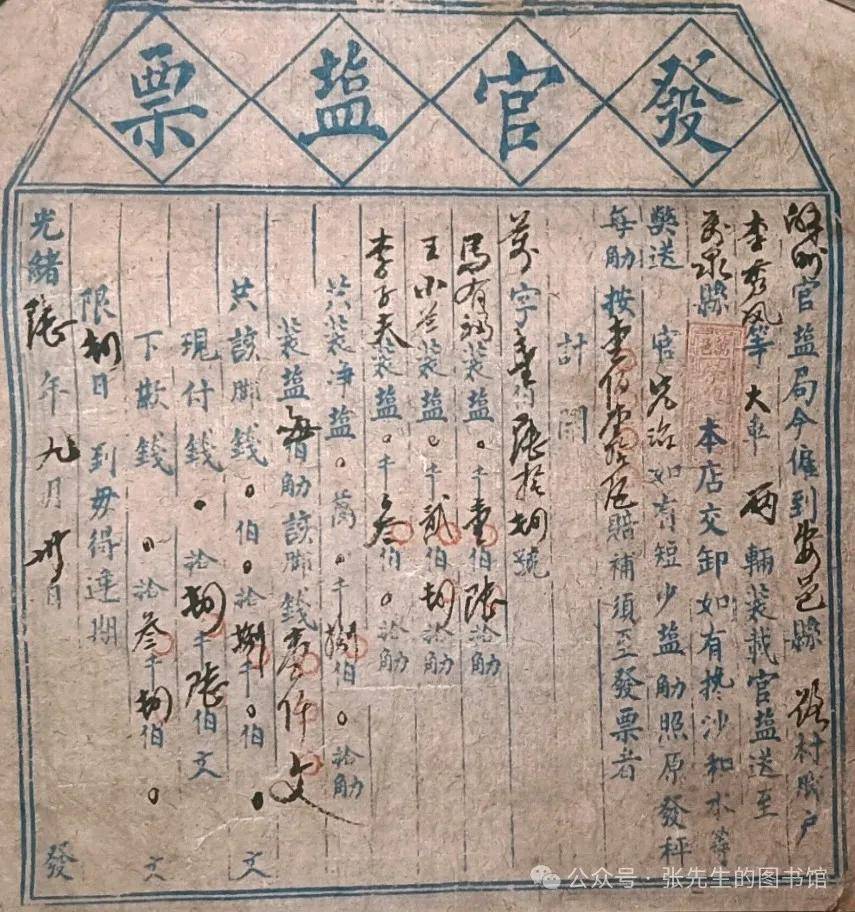 發官盐票
解州官盐局今僱到安邑縣 村脚户
李秀凤等大車 两 輛装載官盐送至
万泉縣 本店交卸如有搀沙和水等
獘送 官 究治如有短少盐觔照原發秤
每觔按壹伯 賠補須至發票者
計開
萬字 號
馬有福装盐。千壹伯陆拾觔
王小 装盐。千貳伯 拾觔
李子天装盐。千叁伯。拾觔
共装净盐。萬。千捌伯。拾觔
装盐每百觔該脚錢壹仟文
共該脚錢。伯。拾捌千。伯。文
現付錢。拾 千陆伯文
下欺錢。拾叁千 伯。文
限 日到毋得違期
光緒 年九月 日 發
公众号·张先生的图书馆